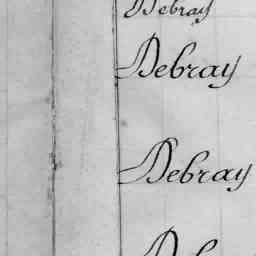 Debray
Debray
Debray